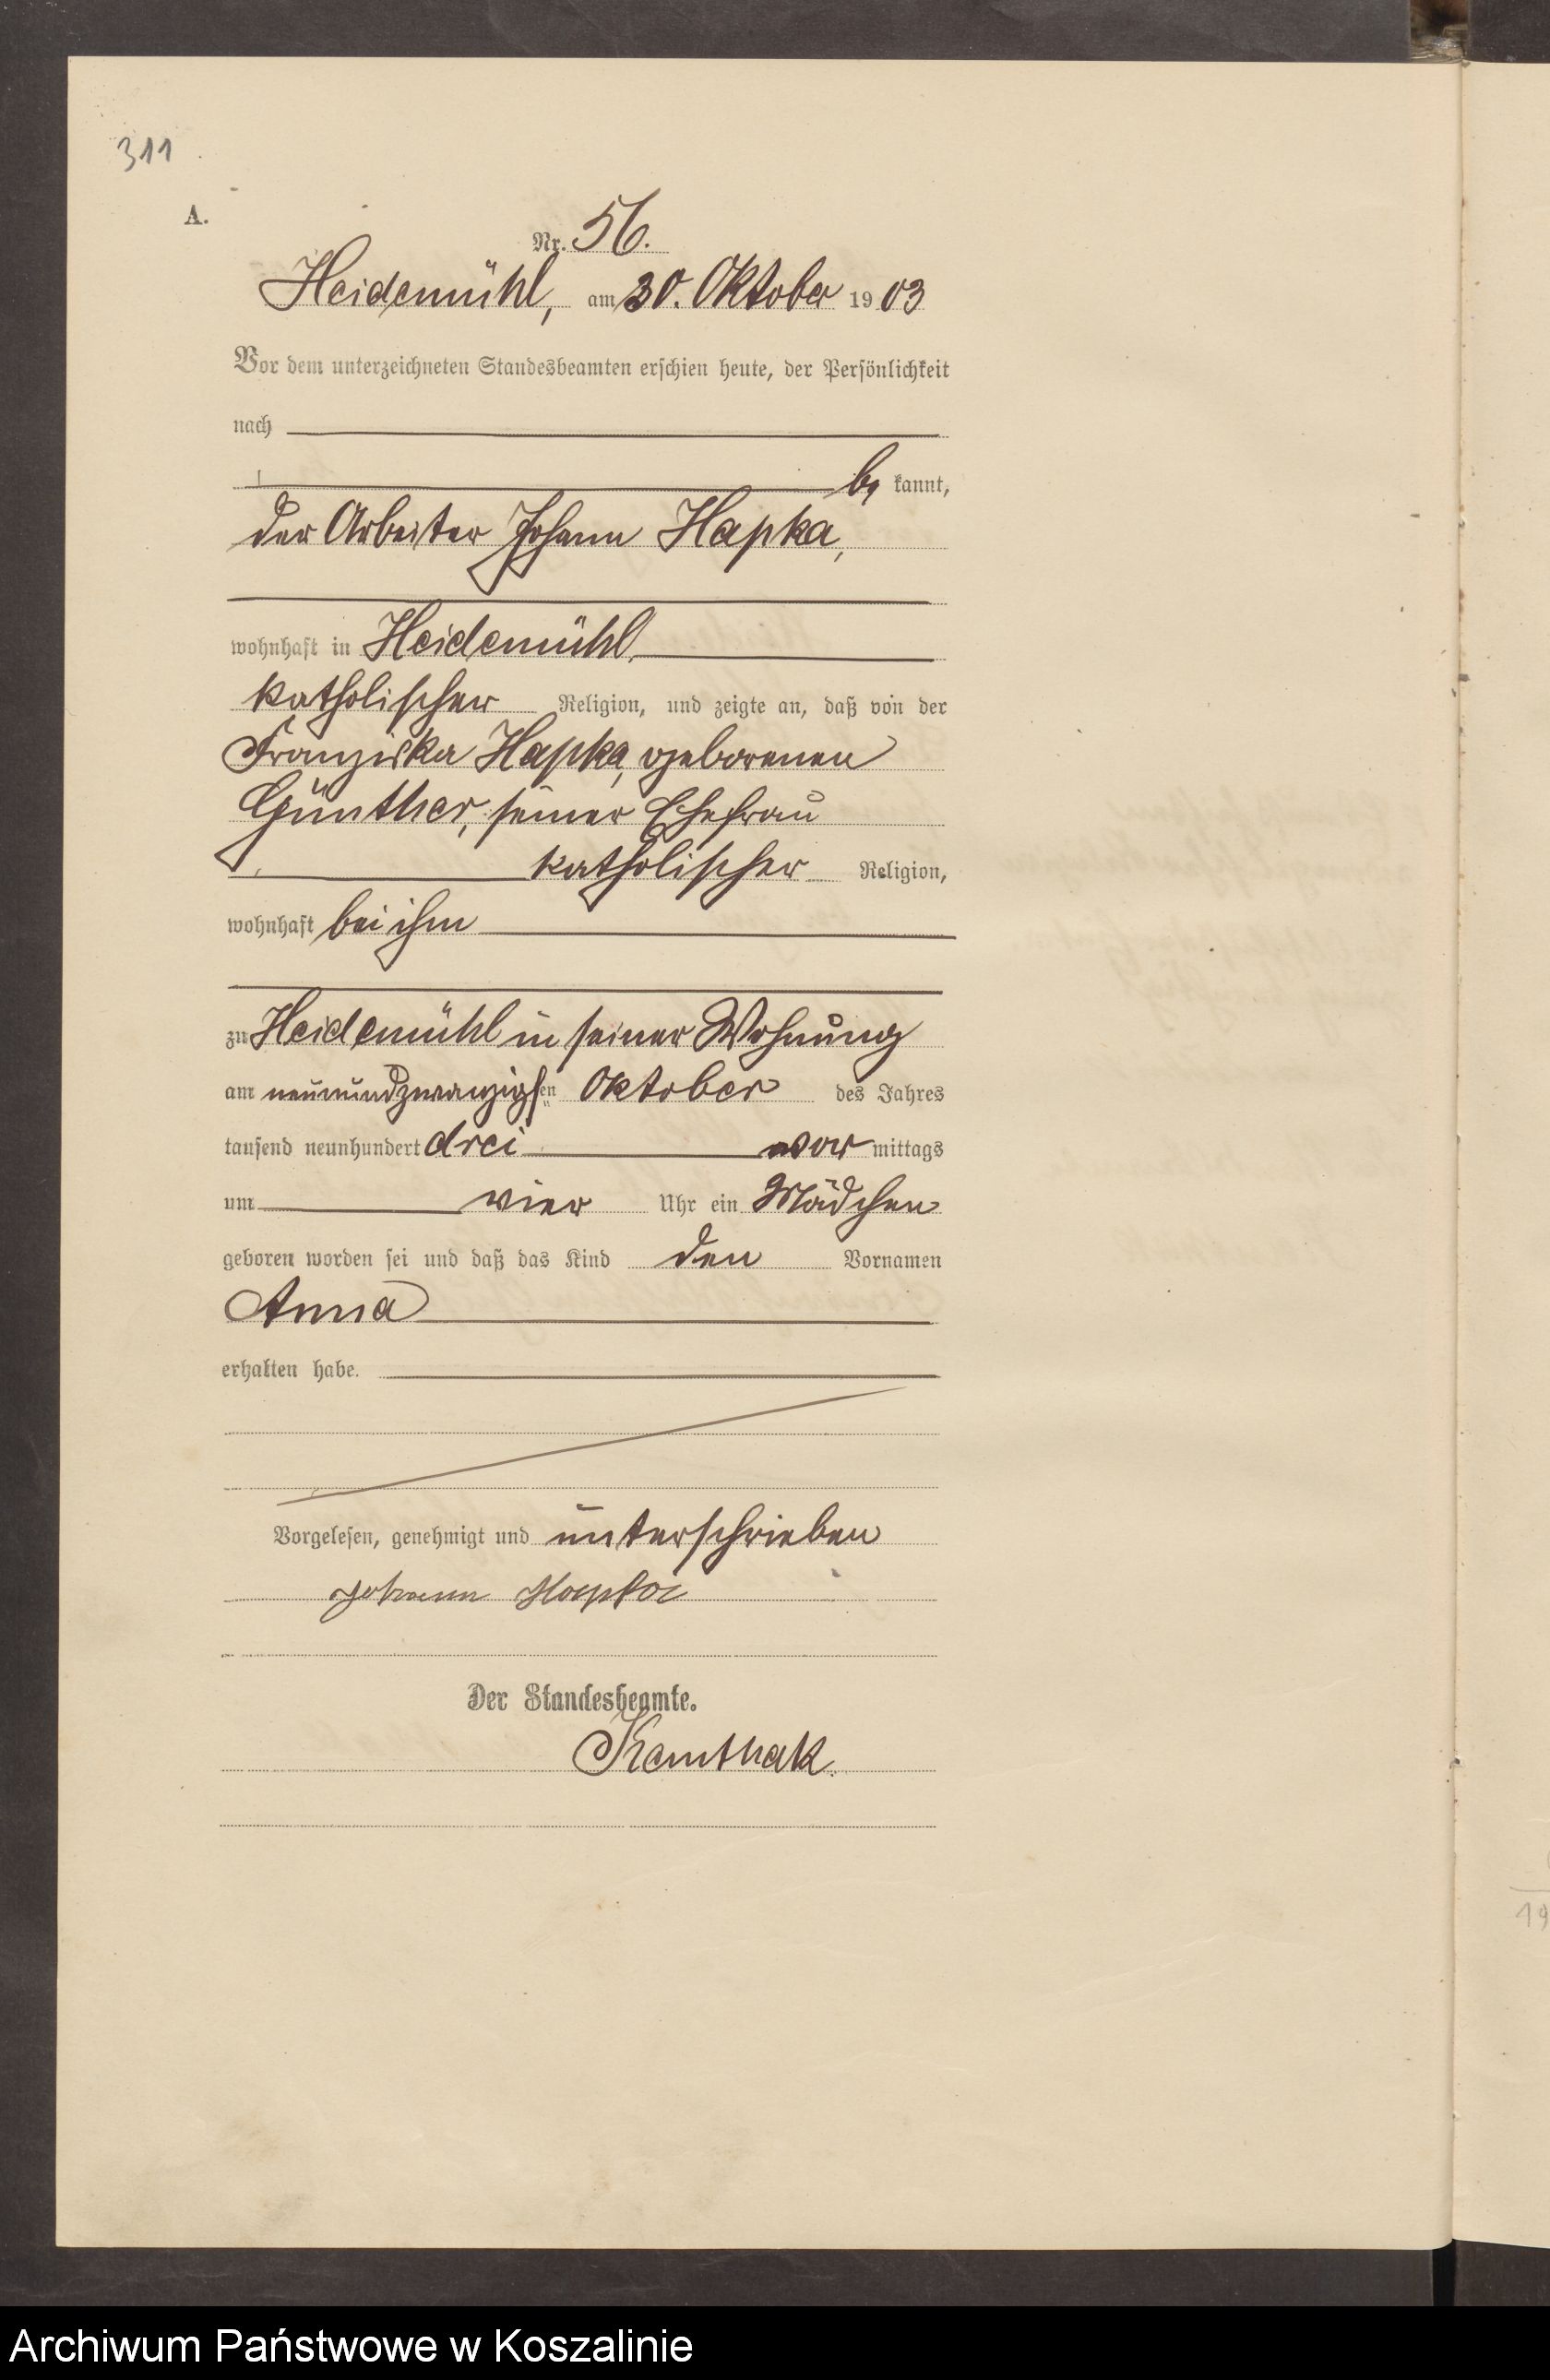 311
A.
Nr. 56.
Heidemühl, am 30. Oktober 1903
Vor dem unterzeichneten Standesbeamten erschien heute, der Persönlichkeit
nach
be kannt,
der Arbeiter Johann Hapka,
wohnhaft in Heidemühl,
katholischer Religion, und zeigte an, daß von der
Franziska Hapka, geborenen
Günther, seiner Ehefrau
katholischer Religion,
wohnhaft bei ihm
zu Heidemühl in seiner Wohnung
am neunundzwanzigsten Oktober des Jahres
tausend neunhundert drei vor mittags
um vier Uhr ein Mädchen
geboren worden sei und daß das Kind den Vornamen
Anna
erhalten habe.
Vorgelesen, genehmigt und unterschrieben
Johann Hapka
Der Standesbeamte.
19
Archiwum Państwowe w Koszalinie